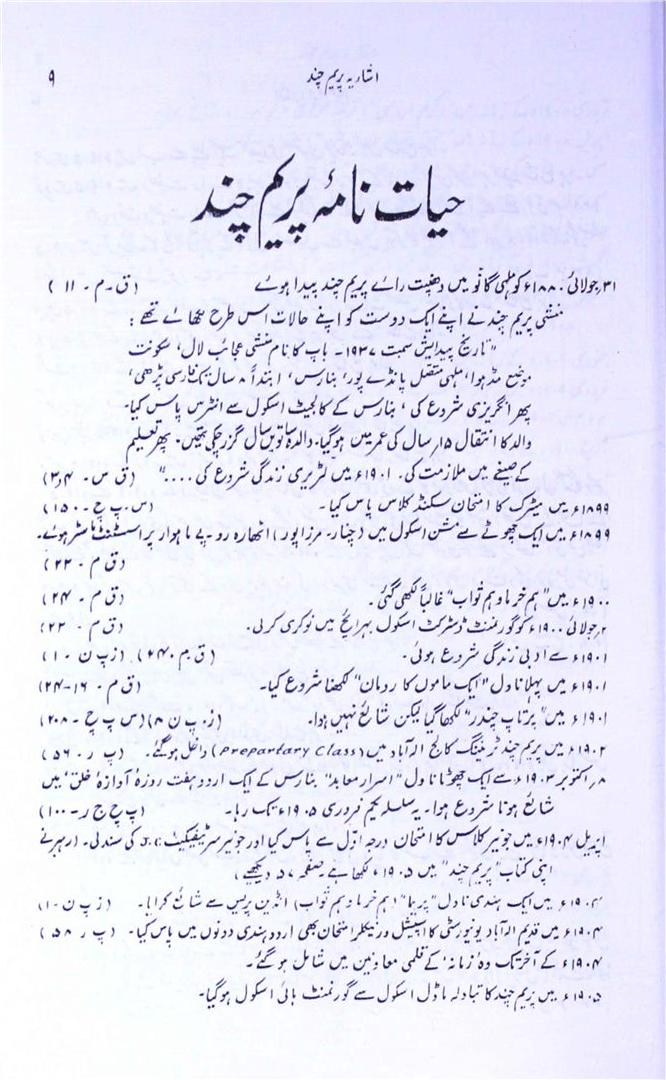 اشاریہ پریم چند ۹
حیات نامۂ پریم چند
۳۱ جولائی ۱۸۸۰ء کو لمہی گانو میں دھنپت رائے پریم چند پیدا ہوئے (ق۔م۔ ۱۱)
منشی پریم چند نے اپنے ایک دوست کو اپنے حالات اس طرح لکھائے تھے:
"تاریخ پیدائش سمت ۱۹۳۷۔ باپ کا نام منشی عجائب لال، سکونت
موضع مڈہوا، لمہی متصل پانڈے پور، بنارس، ابتداً ۸ سال تک فارسی پڑھی،
پھر انگریزی شروع کی، بنارس کے کالجیٹ اسکول سے انٹرنس پاس کیا۔
والد کا انتقال ۱۵ سال کی عمر میں ہوگیا۔ والدہ ساتویں سال گزر چکی تھیں۔ پھر تعلیم
کے صیغے میں ملازمت کی۔ ۱۹۰۱ء میں لٹریری زندگی شروع کی ...." (ق س۔ ۳۴)
۱۸۹۹ء میں میٹرک کا امتحان سکنڈ کلاس پاس کیا۔ (س۔پ ج۔ ۱۵۰)
۱۸۹۹ء میں ایک چھوٹے سے مشن اسکول میں (چنار۔ مرزاپور) اٹھارہ روپے ماہوار پر اسسٹنٹ ماسٹر ہوئے۔
(ق م۔ ۲۳)
۱۹۰۰ء میں "ہم خرما و ہم ثواب" غالباً لکھی گئی۔ (ق م۔ ۲۴)
۲ جولائی ۱۹۰۰ء کو گورنمنٹ ڈسٹرکٹ اسکول بہرائچ میں نوکری کرلی۔ (ق م۔ ۲۳)
۱۹۰۱ء سے ادبی زندگی شروع ہوئی۔ (ق۔م۔ ۲۴) (زپ ن ۱۰)
۱۹۰۱ء میں پہلا ناول "ایک ماموں کا رومان" لکھنا شروع کیا۔ (ق م۔ ۱۶-۲۴)
۱۹۰۱ء میں "پرتاپ چندر" لکھا گیا لیکن شائع نہیں ہوا۔ (ز۔پ ن ۸) (س پ ج۔ ۲۰۸)
۱۹۰۲ء میں پریم چند ٹریننگ کالج الہ آباد میں (Prepartary Class) داخل ہوگئے۔ (پ ر۔ ۵۶)
۸ اکتوبر ۱۹۰۳ء سے ایک چھوٹا ناول "اسرار معابد" بنارس کے ایک اردو ہفت روزہ 'آوازۂ خلق' میں
شائع ہونا شروع ہوا۔ یہ سلسلہ یکم فروری ۱۹۰۵ء تک رہا۔ (پ ج ج ر۔ ۱۰۰)
اپریل ۱۹۰۴ء میں جونیر کلاس کا امتحان درجہ اوّل سے پاس کیا اور جونیر سرٹیفکیٹ کی سند لی۔ (رہبر نے
اپنی کتاب "پریم چند" میں ۱۹۰۵ء لکھا ہے صفحہ ۵۷ دیکھیے)
۱۹۰۴ء میں ایک ہندی ناول "پریما" (ہم خرما و ہم ثواب) انڈین پریس سے شائع کرایا۔ (زپ ن۔ ۱۰)
۱۹۰۴ء میں قدیم الہ آباد یونیورسٹی کا اسپیشل ورنیکلر امتحان بھی اردو ہندی دونوں میں پاس کیا۔ (پ ر ۵۸)
۱۹۰۴ء کے آخر تک وہ 'زمانہ' کے قلمی معاونین میں شامل ہوگئے۔
۱۹۰۵ء میں پریم چند کا تبادلہ ماڈل اسکول سے گورنمنٹ ہائی اسکول ہوگیا۔